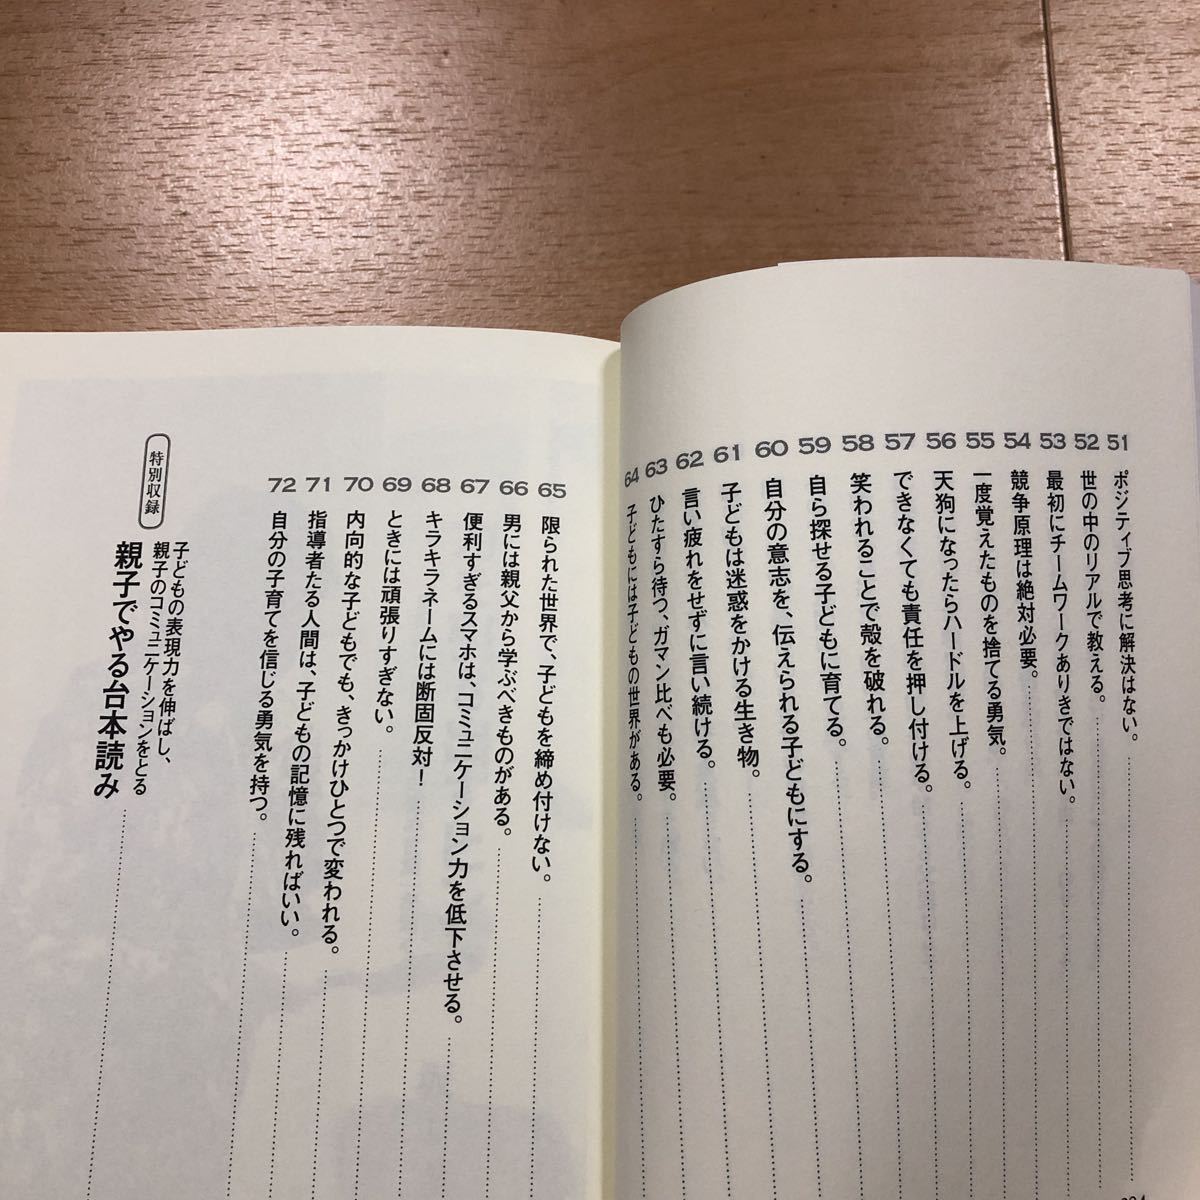 51 ポジティブ思考に解決はない。
52 世の中のリアルで教える。
53 最初にチームワークありきではない。
54 競争原理は絶対必要。
55 一度覚えたものを捨てる勇気。
56 天狗になったらハードルを上げる。
57 できなくても責任を押し付ける。
58 笑われることで殻を破れる。
59 自ら探せる子どもに育てる。
60 自分の意志を、伝えられる子どもにする。
61 子どもは迷惑をかける生き物。
62 言い疲れをせずに言い続ける。
63 ひたすら待つ、ガマン比べも必要。
64 子どもには子どもの世界がある。
65 限られた世界で、子どもを締め付けない。
66 男には親父から学ぶべきものがある。
67 便利すぎるスマホは、コミュニケーション力を低下させる。
68 キラキラネームには断固反対！
69 ときには頑張りすぎない。
70 内向的な子どもでも、きっかけひとつで変われる。
71 指導者たる人間は、子どもの記憶に残ればいい。
72 自分の子育てを信じる勇気を持つ。
特別収録
子どもの表現力を伸ばし、
親子のコミュニケーションをとる
親子でやる台本読み